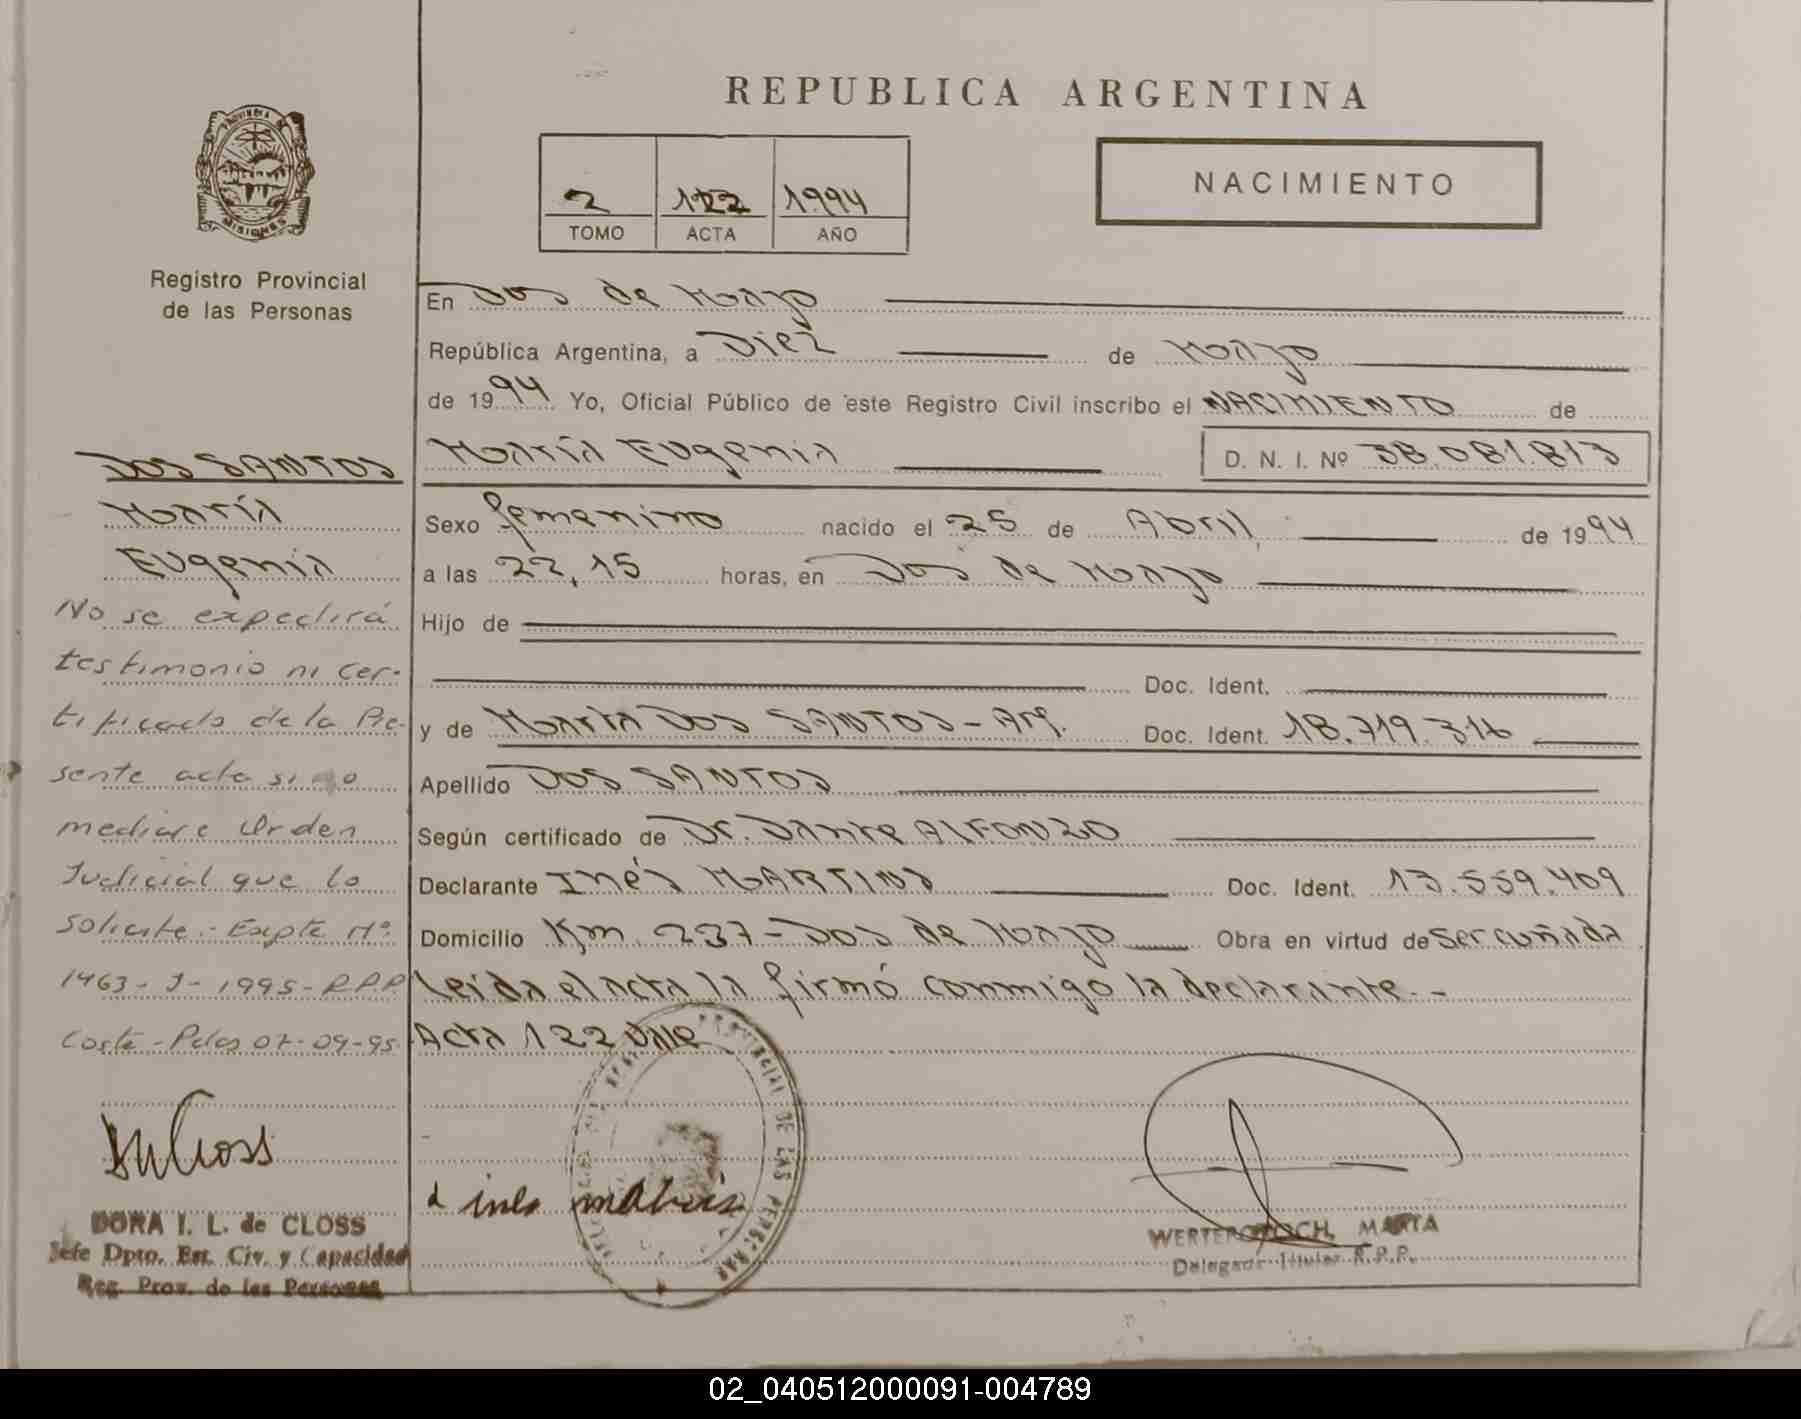 REPUBLICA ARGENTINA
NACIMIENTO
2 122 1994
TOMO ACTA AÑO
PROVINCIA DE MISIONES
Registro Provincial
de las Personas
DOS SANTOS
María
Eugenia
No se expedirá
testimonio ni cer-
tificado de la Pre-
sente acta si no
mediare Orden
Judicial que lo
solicite.- Expte Nº
1463- J- 1995- R.P.P.
Pdas 07-09-95
DORA I. L. de CLOSS
Jefe Dpto. Est. Civ. y Capacidad
Reg. Prov. de las Personas
En Dos de Mayo
República Argentina, a Diez de Mayo
de 1994 Yo, Oficial Público de este Registro Civil inscribo el NACIMIENTO de
María Eugenia D. N. I. Nº 38.081.813
Sexo femenino nacido el 25 de Abril de 1994
a las 22,15 horas, en Dos de Mayo
Hijo de
Doc. Ident.
y de María DOS SANTOS - Arg. Doc. Ident. 18.719.316
Apellido DOS SANTOS
Según certificado de Dr. Dante ALFONZO
Declarante Inés MARTINS Doc. Ident. 13.559.409
Domicilio Km. 237 - Dos de Mayo Obra en virtud de ser cuñada
Leída el acta la firmó conmigo la declarante.-
Acta 122 Vale
PROVINCIAL DE LAS PERS.
ines
WERTEROTOCH, MARTA
Delegada Titular R.P.P.
02_040512000091-004789